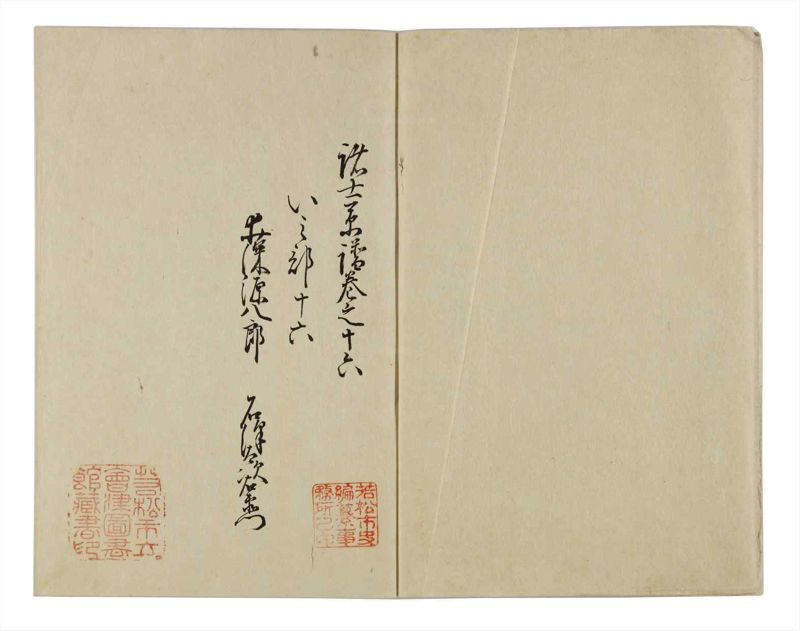 諸士系譜巻之十六
いノ部十六
源八郎 石澤
若松市史
編纂事
務所之印
若松市立
會津圖書
館藏書印